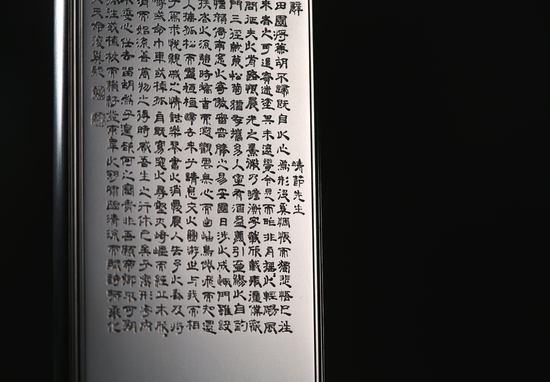 辭
靖節先生
田園將蕪胡不歸既自以心為形役奚惆悵而獨悲悟已往
來者之可追實迷塗其未遠覺今是而昨非舟搖以輕颺風
問征夫以前路恨晨光之熹微乃瞻衡宇載欣載奔僮僕歡
門三徑就荒松菊猶存攜幼入室有酒盈樽引壺觴以自酌
顏倚南窗以寄傲審容膝之易安園日涉以成趣門雖設
扶老以流憩時矯首而遐觀雲無心而出岫鳥倦飛而知還
入撫孤松而盤桓歸去來兮請息交以絕遊世與我而相
兮焉求悅親戚之情話樂琴書以消憂農人告予以春及將
疇或命巾車或棹孤舟既窈窕以尋壑亦崎嶇而經丘木欣
涓而始流善萬物之得時感吾生之行休已矣乎寓形宇內
不委心任去留胡為乎遑遑欲何之富貴非吾願帝鄉不可期
以孤往或植杖而耘耔登東皋以舒嘯臨清流而賦詩聊乘化
夫天命復奚疑